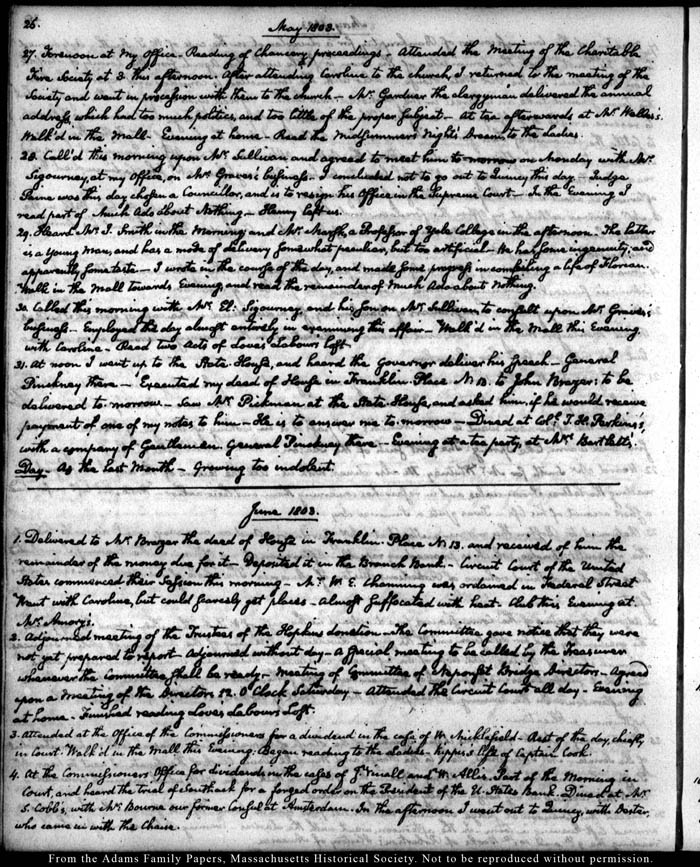 26.
May 1803.
27. Forenoon at my Office. Reading of Chancery proceedings. Attended the Meeting of the Charitable
Fire Society at 3 this afternoon. After attending Caroline to the church, I returned to the meeting of the
Society and went in procession with them to the church — Mr. Gardner the clergyman delivered the annual
address, which had too much politics, and too little of the proper subject. At tea afterwards at Mr. Wells's.
Walk'd in the Mall. Evening at home. Read the Midsummer Night's Dream, to the Ladies.
28. Call'd this morning upon Mr. Sullivan and agreed to meet him to-morrow on Monday with Mr.
Sigourney, at my Office, on Mr. Graves's business. I concluded not to go out to Quincy this day. Judge
Paine was this day chosen a Councillor, and is to resign his Office in the Supreme Court — In the Evening I
read part of Much Ado about Nothing. Henry left us.
29. Heard Mr. J. Smith in the Morning, and Mr. Marsh, a Professor of Yale College in the afternoon. The latter
is a Young Man, and has a mode of delivery somewhat peculiar, but too artificial — He has some ingenuity, and
apparently some taste — I wrote in the course of the day, and made some progress in compiling a life of Florian.
Walk in the Mall towards Evening, and read the remainder of Much Ado about Nothing.
30. Called this morning with Mr. El: Sigourney, and his Son on Mr. Sullivan to consult upon Mr. Graves's
business — Employed the day almost entirely in examining this affair — Walk'd in the Mall this Evening,
with Caroline — Read two Acts of Love's Labours lost —
31. At noon I went up to the State-House, and heard the Governor deliver his speech — General
Pinckney there — Executed my deed of House in Franklin Place N 13. to John Brazer: to be
delivered to-morrow — Saw Mr. Pickman at the State-House, and asked him, if he would receive
payment of one of my notes to him — He is to answer me to-morrow — Dined at Colo. T. H. Perkins's,
with a company of Gentlemen. General Pinckney there — Evening at a tea party, at Mrs. Bartlett's.
Day — As the last Month — Growing too indolent.
June 1803.
1. Delivered to Mr. Brazer the deed of House in Franklin Place N 13. and received of him the
remainder of the money due for it — Deposited it in the Branch Bank — Circuit Court of the United
States commenced their Session this morning — Mr. W. E. Channing was ordained in Federal Street
Went with Caroline, but could scarcely get places — Almost suffocated with heat. Club this Evening at
Mr. Amory's.
2. Adjourned meeting of the Trustees of the Hopkins donation — The Committee gave notice that they were
not yet prepared to report — Adjourned without day — A special meeting to be called by the Treasurer
whenever the Committee shall be ready — Meeting of Committee of Neponset Bridge Directors — Agreed
upon a Meeting of the Directors 12. O'Clock Saturday — Attended the Circuit Court all day — Evening
at home — Finished reading Love's Labours Lost.
3. Attended at the Office of the Commissioners for a dividend in the case of W. Micklefield. Rest of the day, chiefly
in Court. Walk'd in the Mall this Evening. Began reading to the Ladies Kippis's life of Captain Cook.
4. At the Commissioners Office for dividends in the cases of and W. Allis. Part of the Morning in
Court, and heard the trial of Southack for a forged order on the President of the U. States Bank. Dined at Mr.
S. Cobb's, with Mr. Bourne our former Consul at Amsterdam. In the afternoon I went out to Quincy, with Dexter,
who came in with the Chaise.
From the Adams Family Papers, Massachusetts Historical Society. Not to be reproduced without permission.